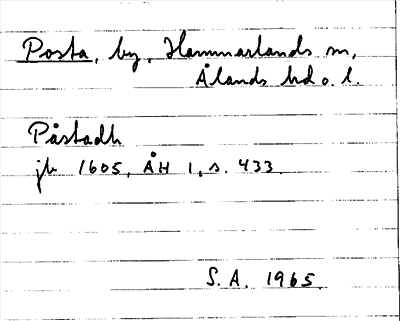 Posta, by, Hammarlands sn,
Ålands hd o. l.
Påstadh
jb 1605, ÅH 1, s. 433.
S. A. 1965.